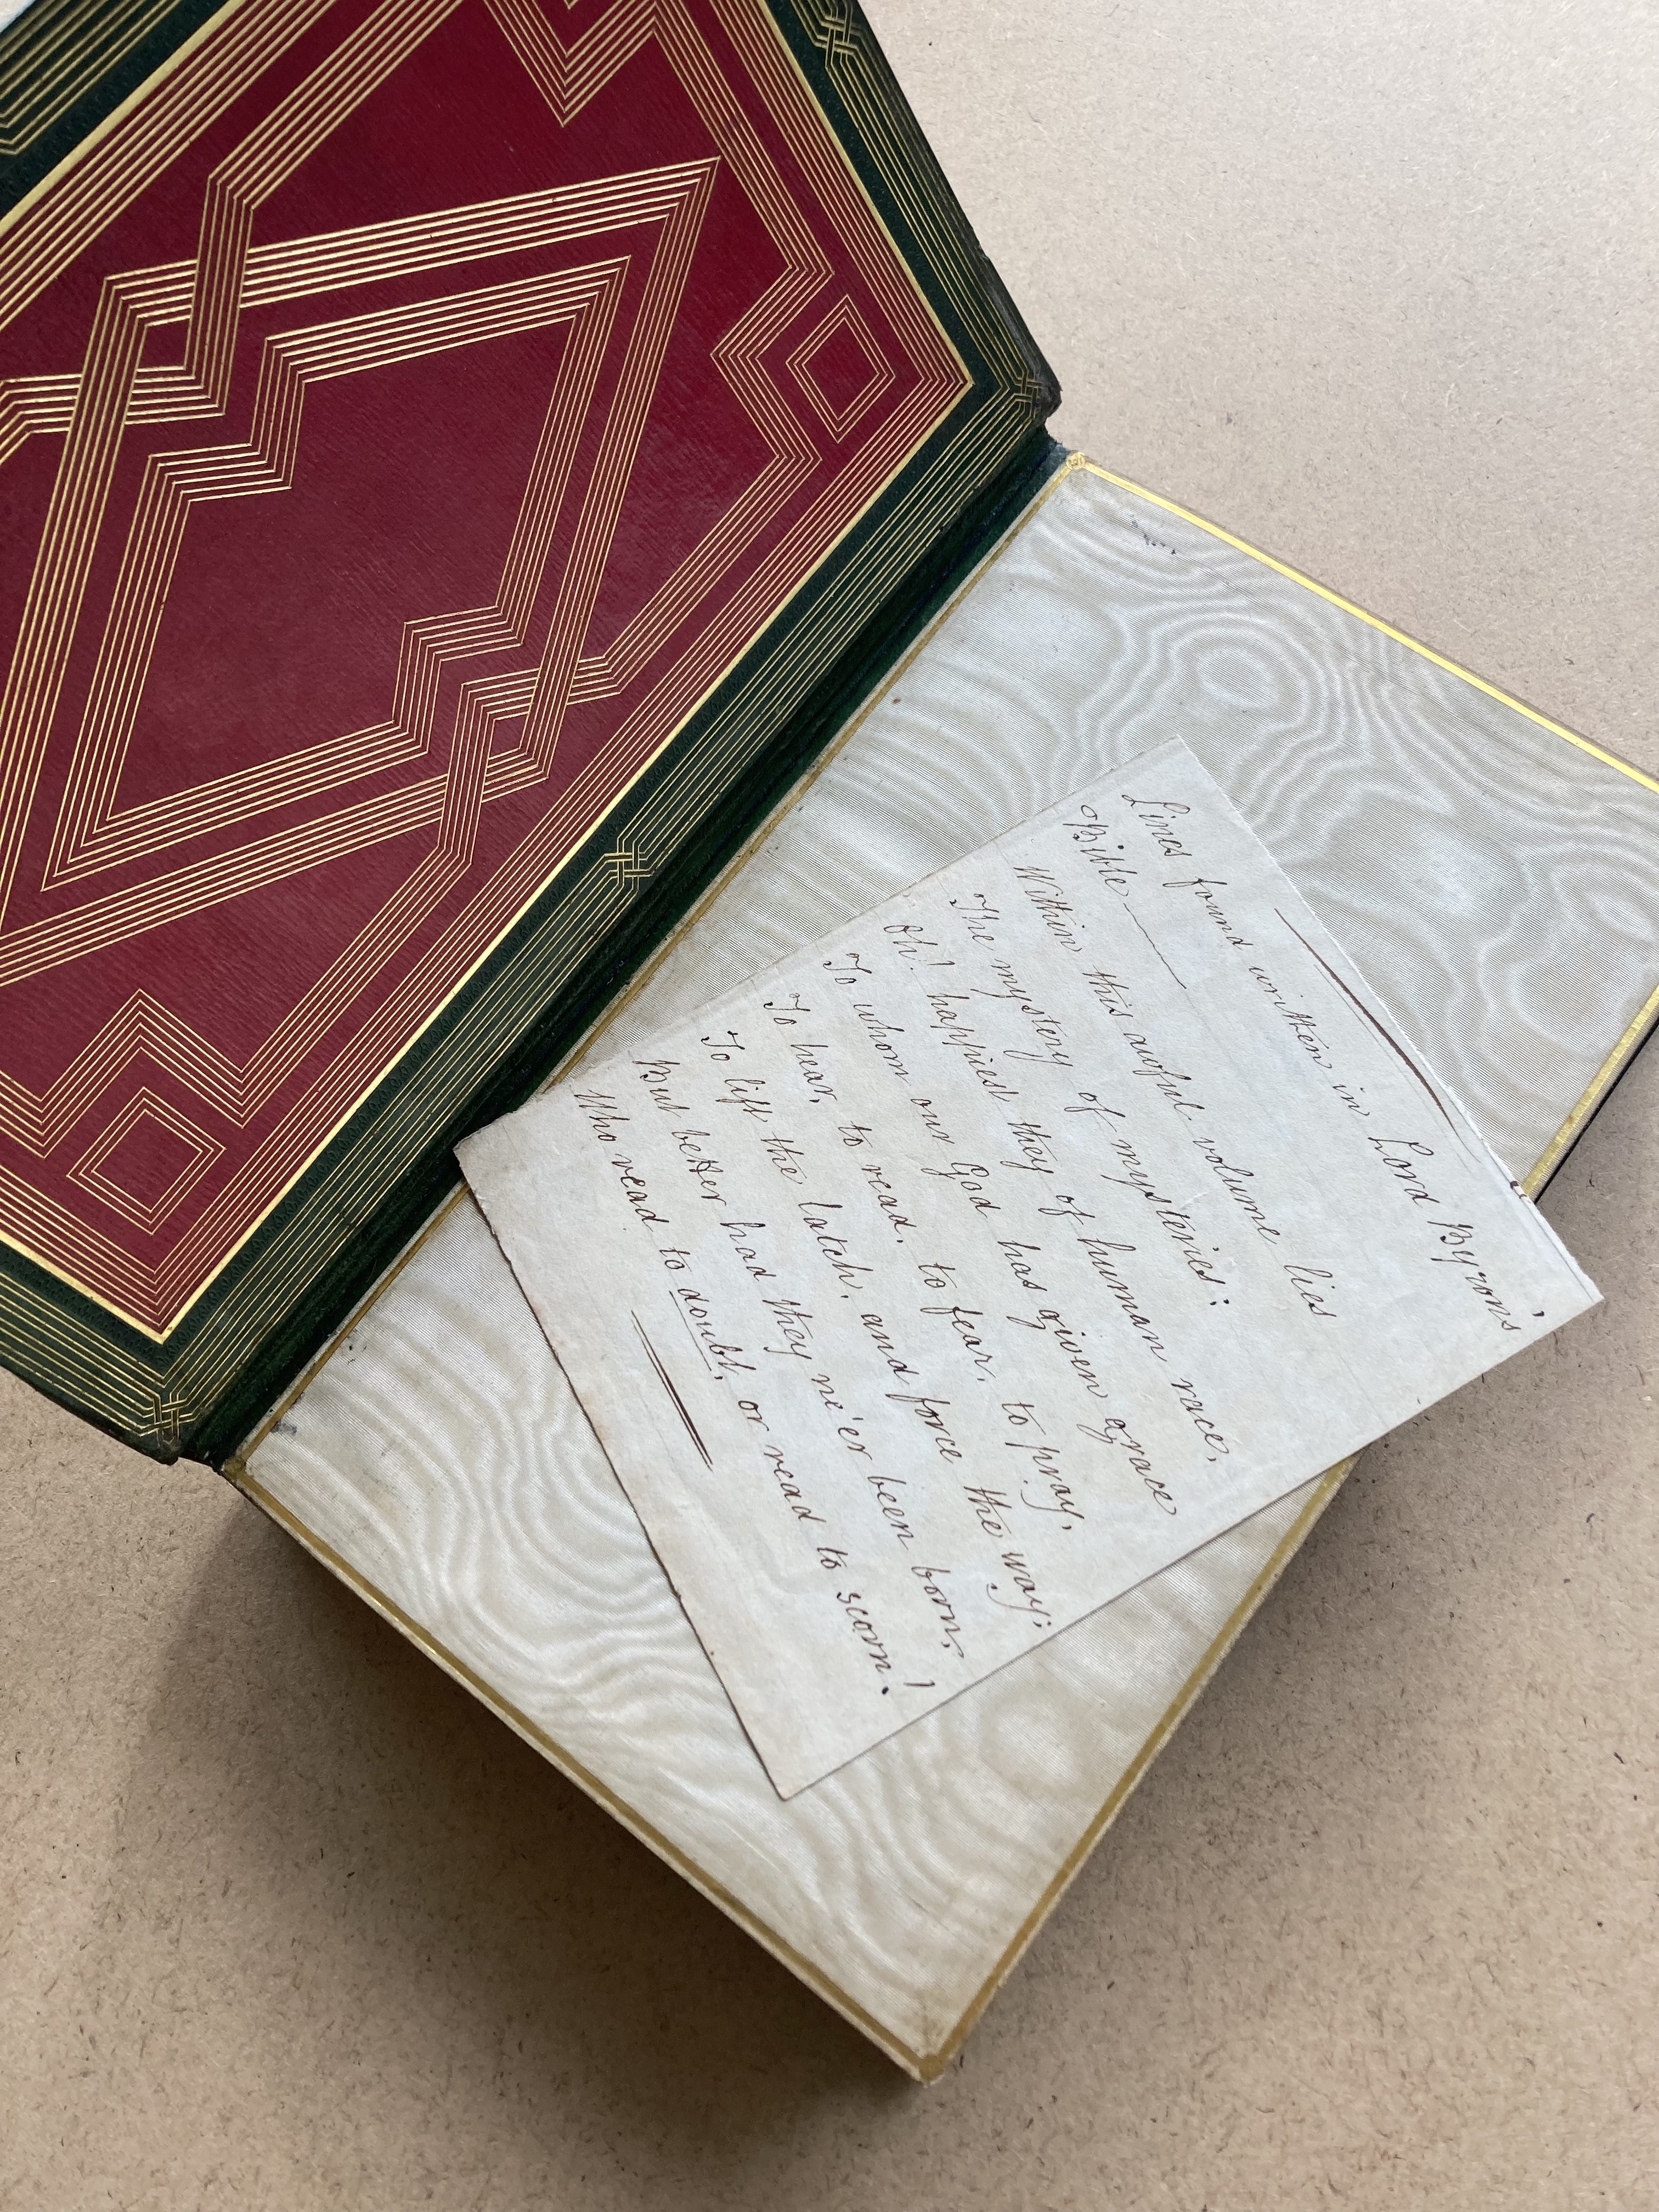 Lines found written in Lord Byron's
Bible
Within this awful volume lies
The mystery of mysteries:
Oh! happiest they of human race,
To whom our God has given grace
To hear, to read, to fear, to pray,
To lift the latch, and force the way:
But better had they ne'er been born,
Who read to doubt, or read to scorn!